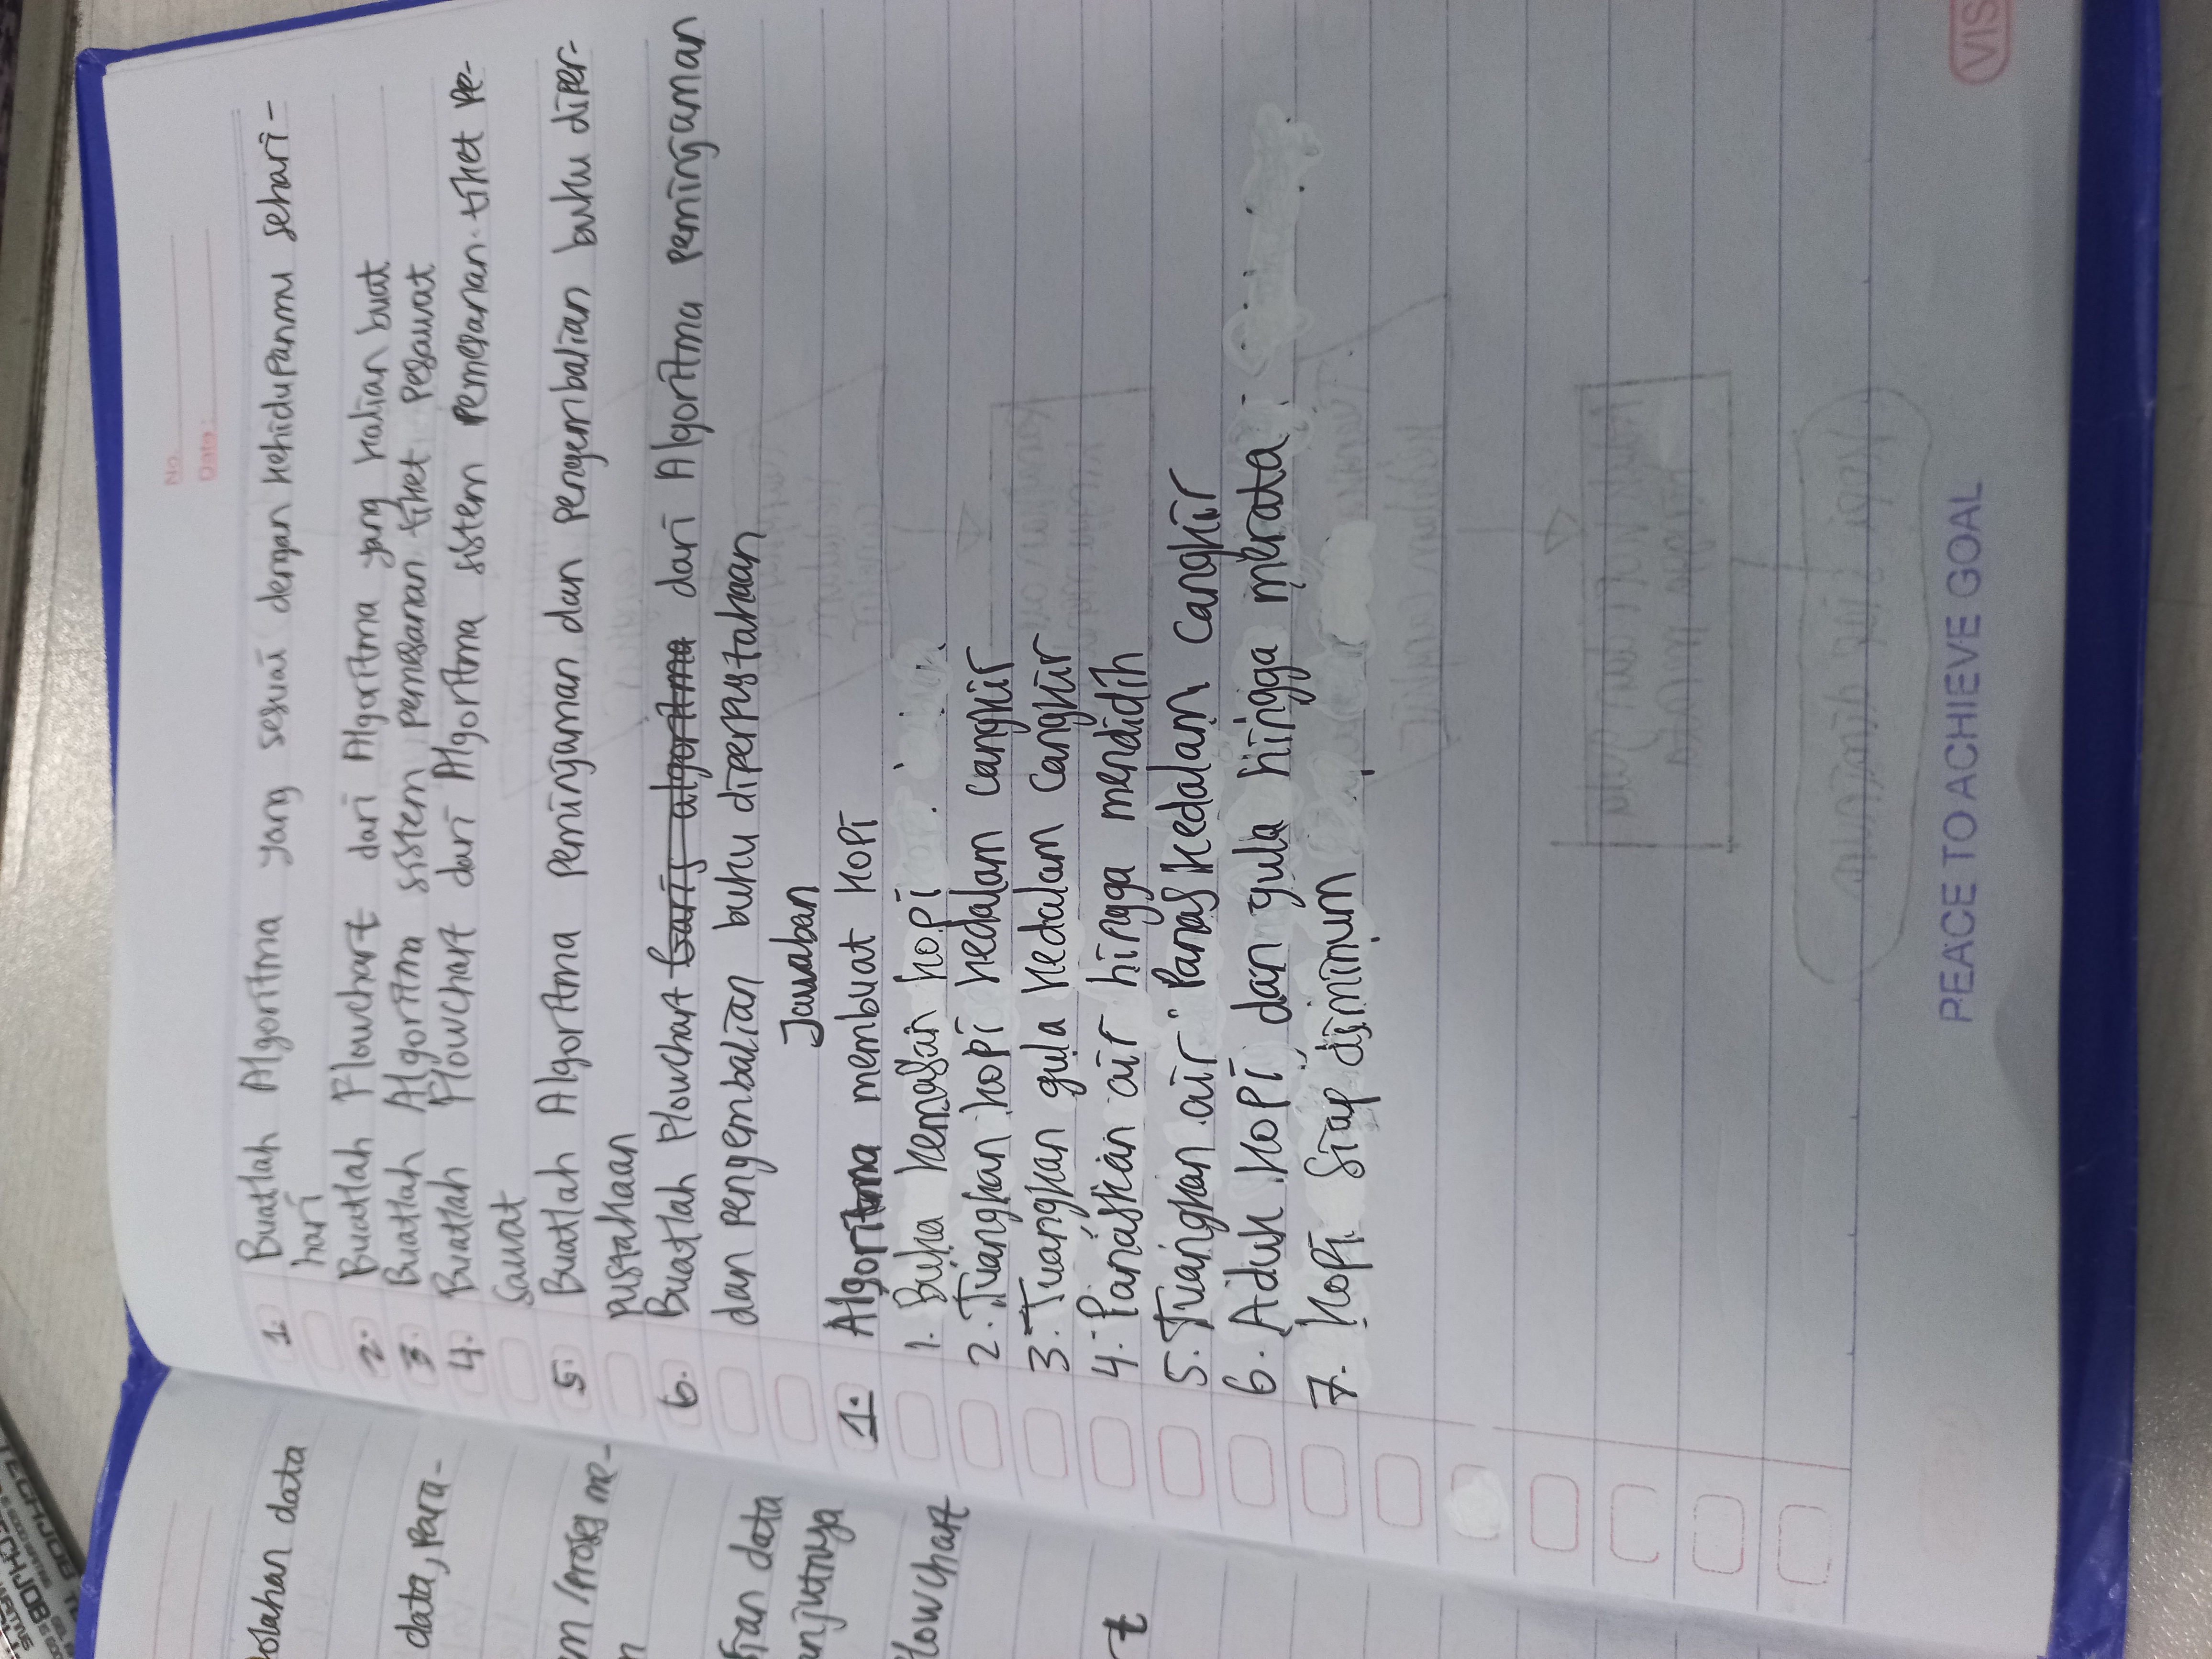 TECHJOB
No.
Date :
olahan data
data, para-
m / proses me-
n
sian data
anjutnya
lowchart
t
1. Buatlah Algoritma yang sesuai dengan kehidupanmu sehari-
hari
2. Buatlah Flowchart dari Algoritma yang kalian buat
3. Buatlah Algoritma sistem pemesanan tiket pesawat
4. Buatlah Flowchart dari Algoritma sistem pemesanan tiket pe-
sawat
5. Buatlah Algoritma peminjaman dan pengembalian buku diper-
pustakaan
6. Buatlah Flowchart baris algoritma dari Algoritma peminjaman
dan pengembalian buku diperpustakaan
Jawaban
1. Algoritma membuat kopi
1. Buka kemasan kopi
2. Tuangkan kopi kedalam cangkir
3. Tuangkan gula kedalam cangkir
4. Panaskan air hingga mendidih
5. Tuangkan air panas kedalam cangkir
6. Aduk kopi dan gula hingga merata
7. Kopi siap diminum
PEACE TO ACHIEVE GOAL
VIS